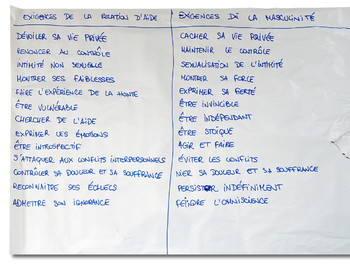 EXIGENCES DE LA RELATION D'AIDE
DÉVOILER SA VIE PRIVÉE
RENONCER AU CONTRÔLE
INTIMITÉ NON SEXUELLE
MONTRER SES FAIBLESSES
FAIRE L'EXPÉRIENCE DE LA HONTE
ÊTRE VULNÉRABLE
CHERCHER DE L'AIDE
EXPRIMER LES ÉMOTIONS
ÊTRE INTROSPECTIF
S'ATTAQUER AUX CONFLITS INTERPERSONNELS
CONTRÔLER SA DOULEUR ET SA SOUFFRANCE
RECONNAITRE SES ÉCHECS
ADMETTRE SON IGNORANCE
EXIGENCES DE LA MASCULINITÉ
CACHER SA VIE PRIVÉE
MAINTENIR LE CONTRÔLE
SEXUALISATION DE L'INTIMITÉ
MONTRER SA FORCE
EXPRIMER SA FIERTÉ
ÊTRE INVINCIBLE
ÊTRE INDÉPENDANT
ÊTRE STOÏQUE
AGIR ET FAIRE
ÉVITER LES CONFLITS
NIER SA DOULEUR ET SA SOUFFRANCE
PERSISTER INDÉFINIMENT
FEINDRE L'OMNISCIENCE